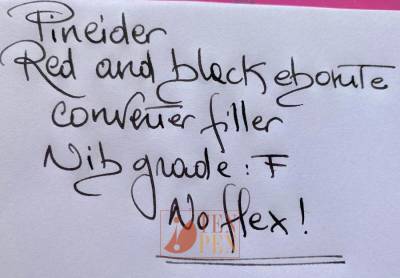 Pineider
Red and black ebonite
converter filler
Nib grade : F
No flex !
TES
PEN